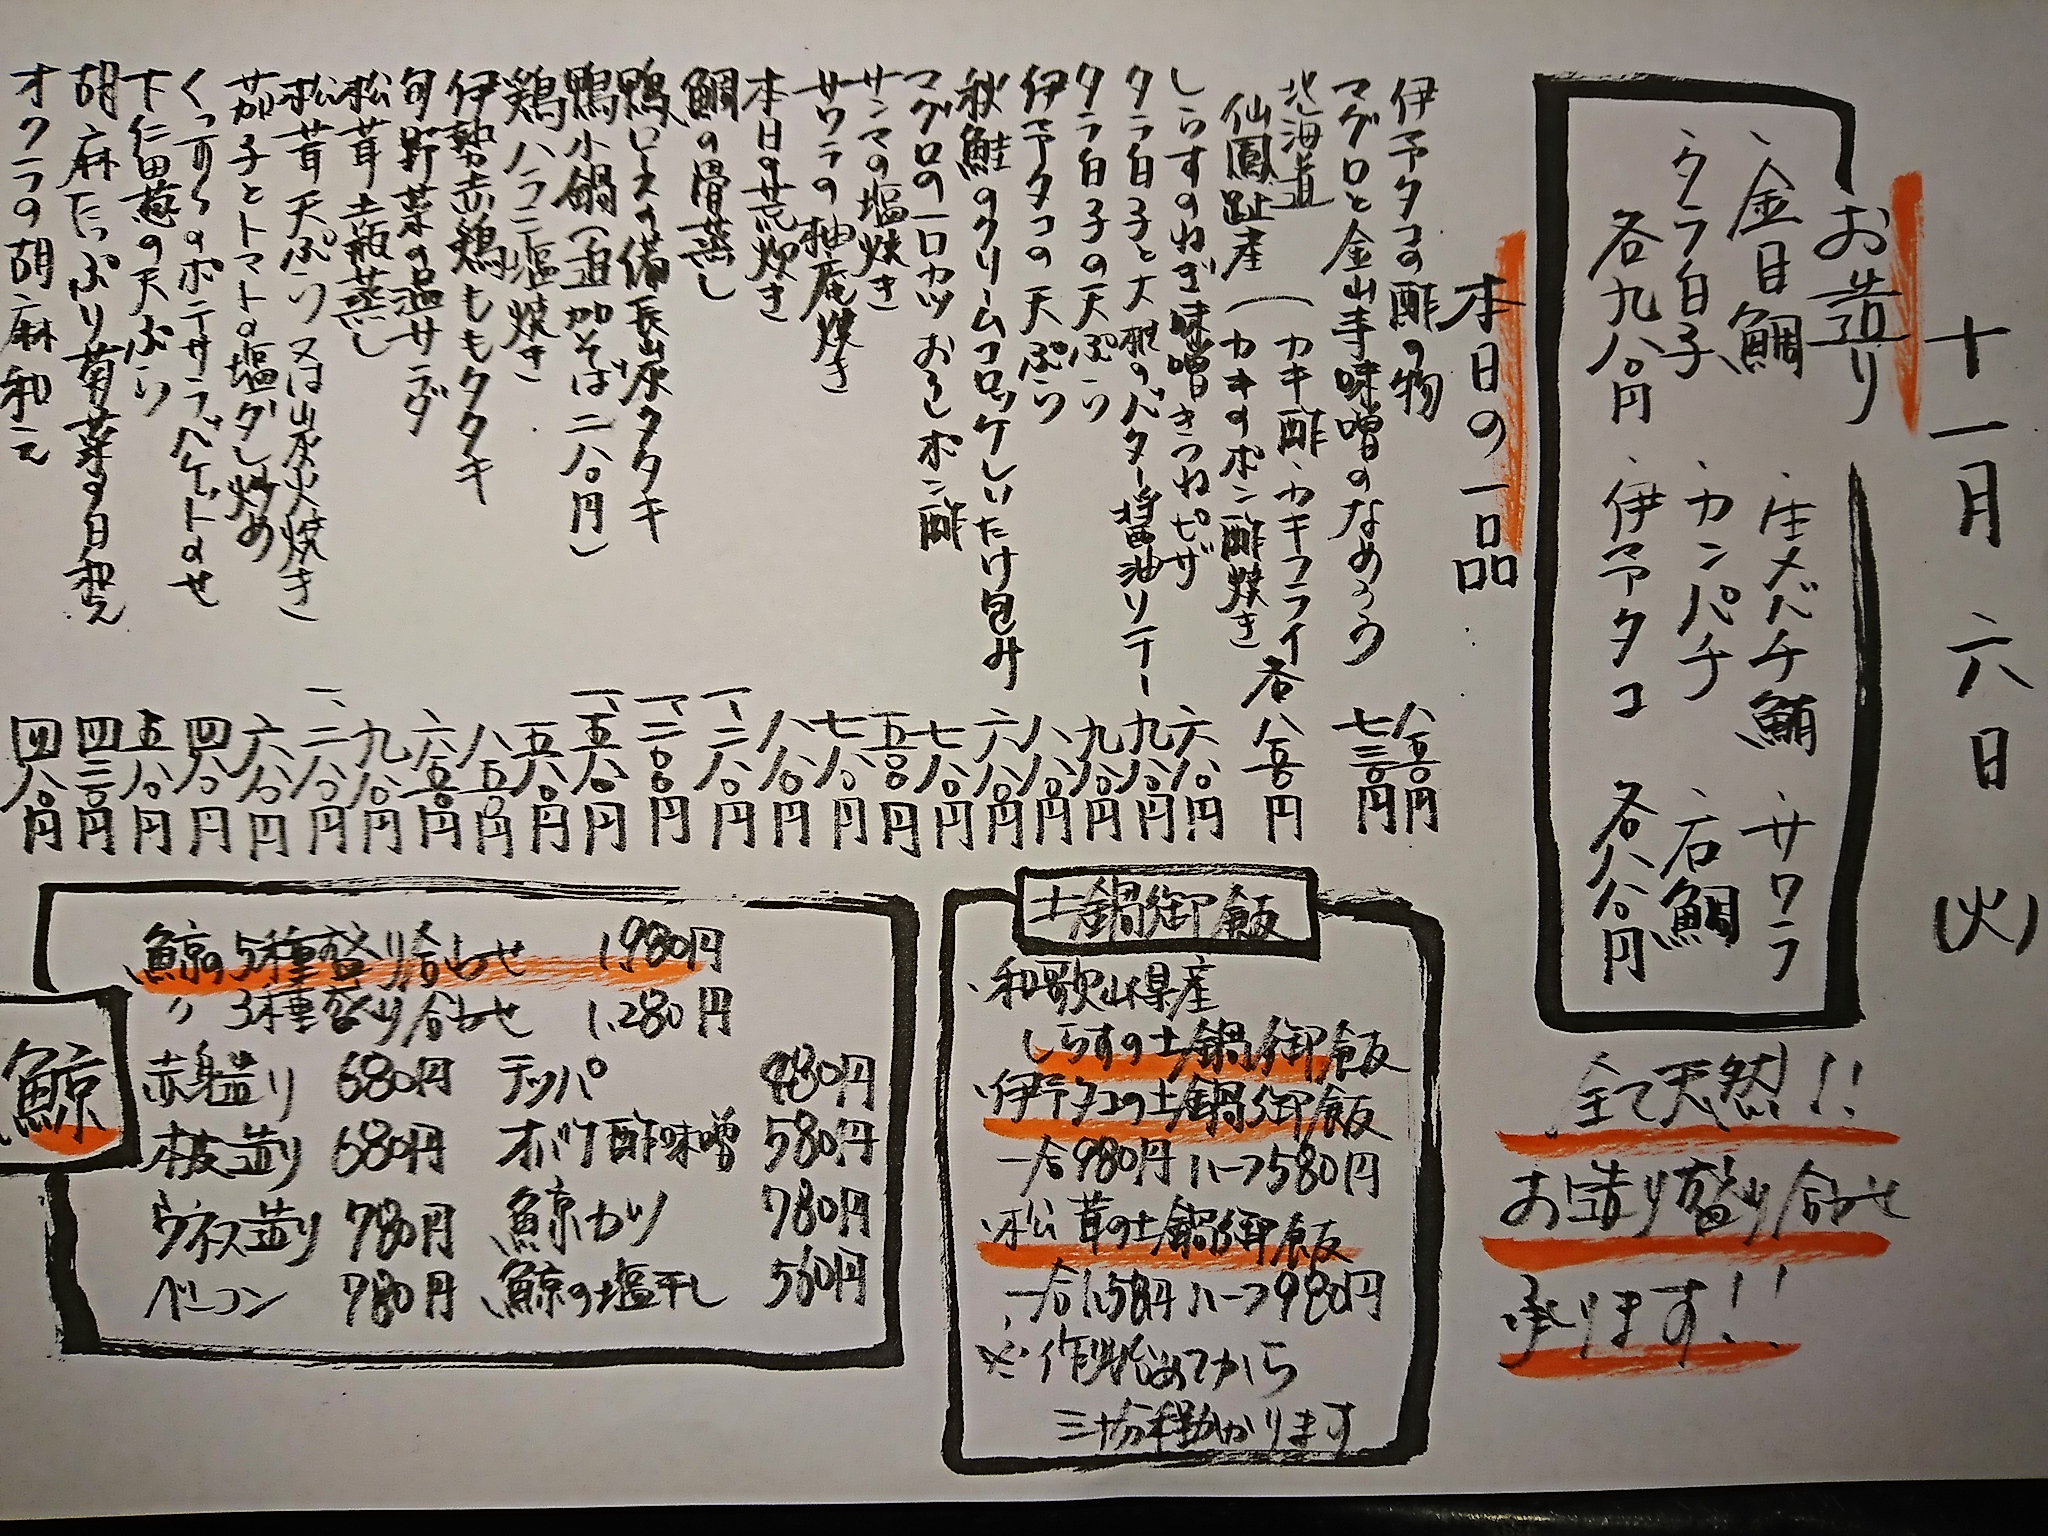 十一月六日(火)
お造り
・金目鯛 ・生メバチ鮪 ・サワラ
・タラ白子 ・カンパチ ・石鯛
各九八〇円 ・伊予タコ 各八八〇円
全て天然!!
お造り盛り合わせ
承ります!!
本日の一品
伊予タコの酢の物 八五〇円
マグロと金山寺味噌のなめろう 七三〇円
北海道
仙鳳趾産(カキ酢・カキフライ
カキのポン酢焼き 各八五〇円
しらすのねぎ味噌きつねピザ 六八〇円
タラ白子と大根のバター醤油ソテー 九八〇円
タラ白子の天ぷら 九八〇円
伊予タコの天ぷら 八八〇円
秋鮭のクリームコロッケしいたけ包み 六八〇円
マグロの一口カツ おろしポン酢 七八〇円
サンマの塩焼き 五八〇円
サワラの柚庵焼き 七八〇円
本日の荒炊き 八八〇円
鯛の骨蒸し 一、二八〇円
鴨ロースの備長炭タタキ 一、二〇〇円
鴨小鍋(追加そば二八〇円) 一、五八〇円
鶏ハラミ塩焼き 五八〇円
伊勢赤鶏ももタタキ 八五〇円
旬野菜の温サラダ 六五〇円
松茸土瓶蒸し 九八〇円
松茸天ぷら又は炭火焼き 一、二八〇円
茄子とトマトの塩ダレ炒め 六八〇円
くっすらのポテサラバケットのせ 四八〇円
下仁田葱の天ぷら 五八〇円
胡麻たっぷり菊菜の白和え 四三〇円
オクラの胡麻和え 四八〇円
土鍋御飯
・和歌山県産
しらすの土鍋御飯
・伊予タコの土鍋御飯
一合980円 ハーフ580円
・松茸の土鍋御飯
一合1,580円 ハーフ980円
※作り始めてから
三十分程掛かります
鯨
鯨の5種盛り合わせ 1,980円
〃 3種盛り合わせ 1,280円
赤身造り 680円 テッパ 480円
本皮造り 680円 オバケ酢味噌 580円
ウネス造り 780円 鯨カツ 780円
ベーコン 780円 鯨の塩干し 560円